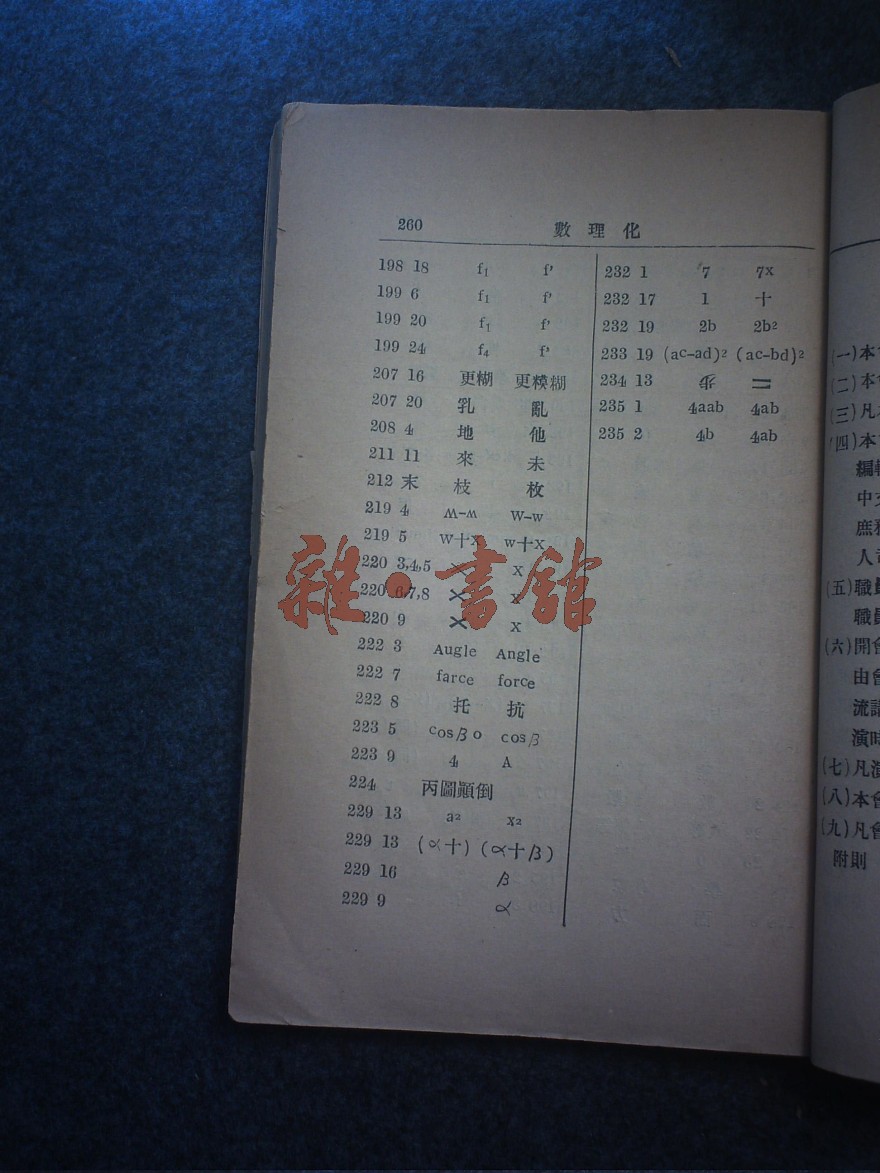 260 數理化
198 18 f₁ f'
199 6 f₁ f'
199 20 f₁ f'
199 24 f₄ f'
207 16 更糊 更糢糊
207 20 乳 亂
208 4 地 他
211 11 來 未
212 末 枝 枚
219 4 W-W
219 5 W十X w十x
220 3,4,5 X x
220 6,7,8 X x
220 9 X x
222 3 Augle Angle
222 7 farce force
222 8 托 抗
223 5 cosβo cosβ
223 9 4 A
224 丙圖顚倒
229 13 a² x²
229 13 (α十) (α十β)
229 16 β
229 9 α
232 1 7 7x
232 17 1 十
232 19 2b 2b²
233 19 (ac-ad)² (ac-bd)²
234 13 步 二
235 1 4aab 4ab
235 2 4b 4ab
雜·書館
(一)本
(二)本會
(三)凡
(四)本
編輯
中
庶務
人
(五)職員
職員
(六)開會
由會
流
演
(七)凡演
(八)本會
(九)凡會
附則